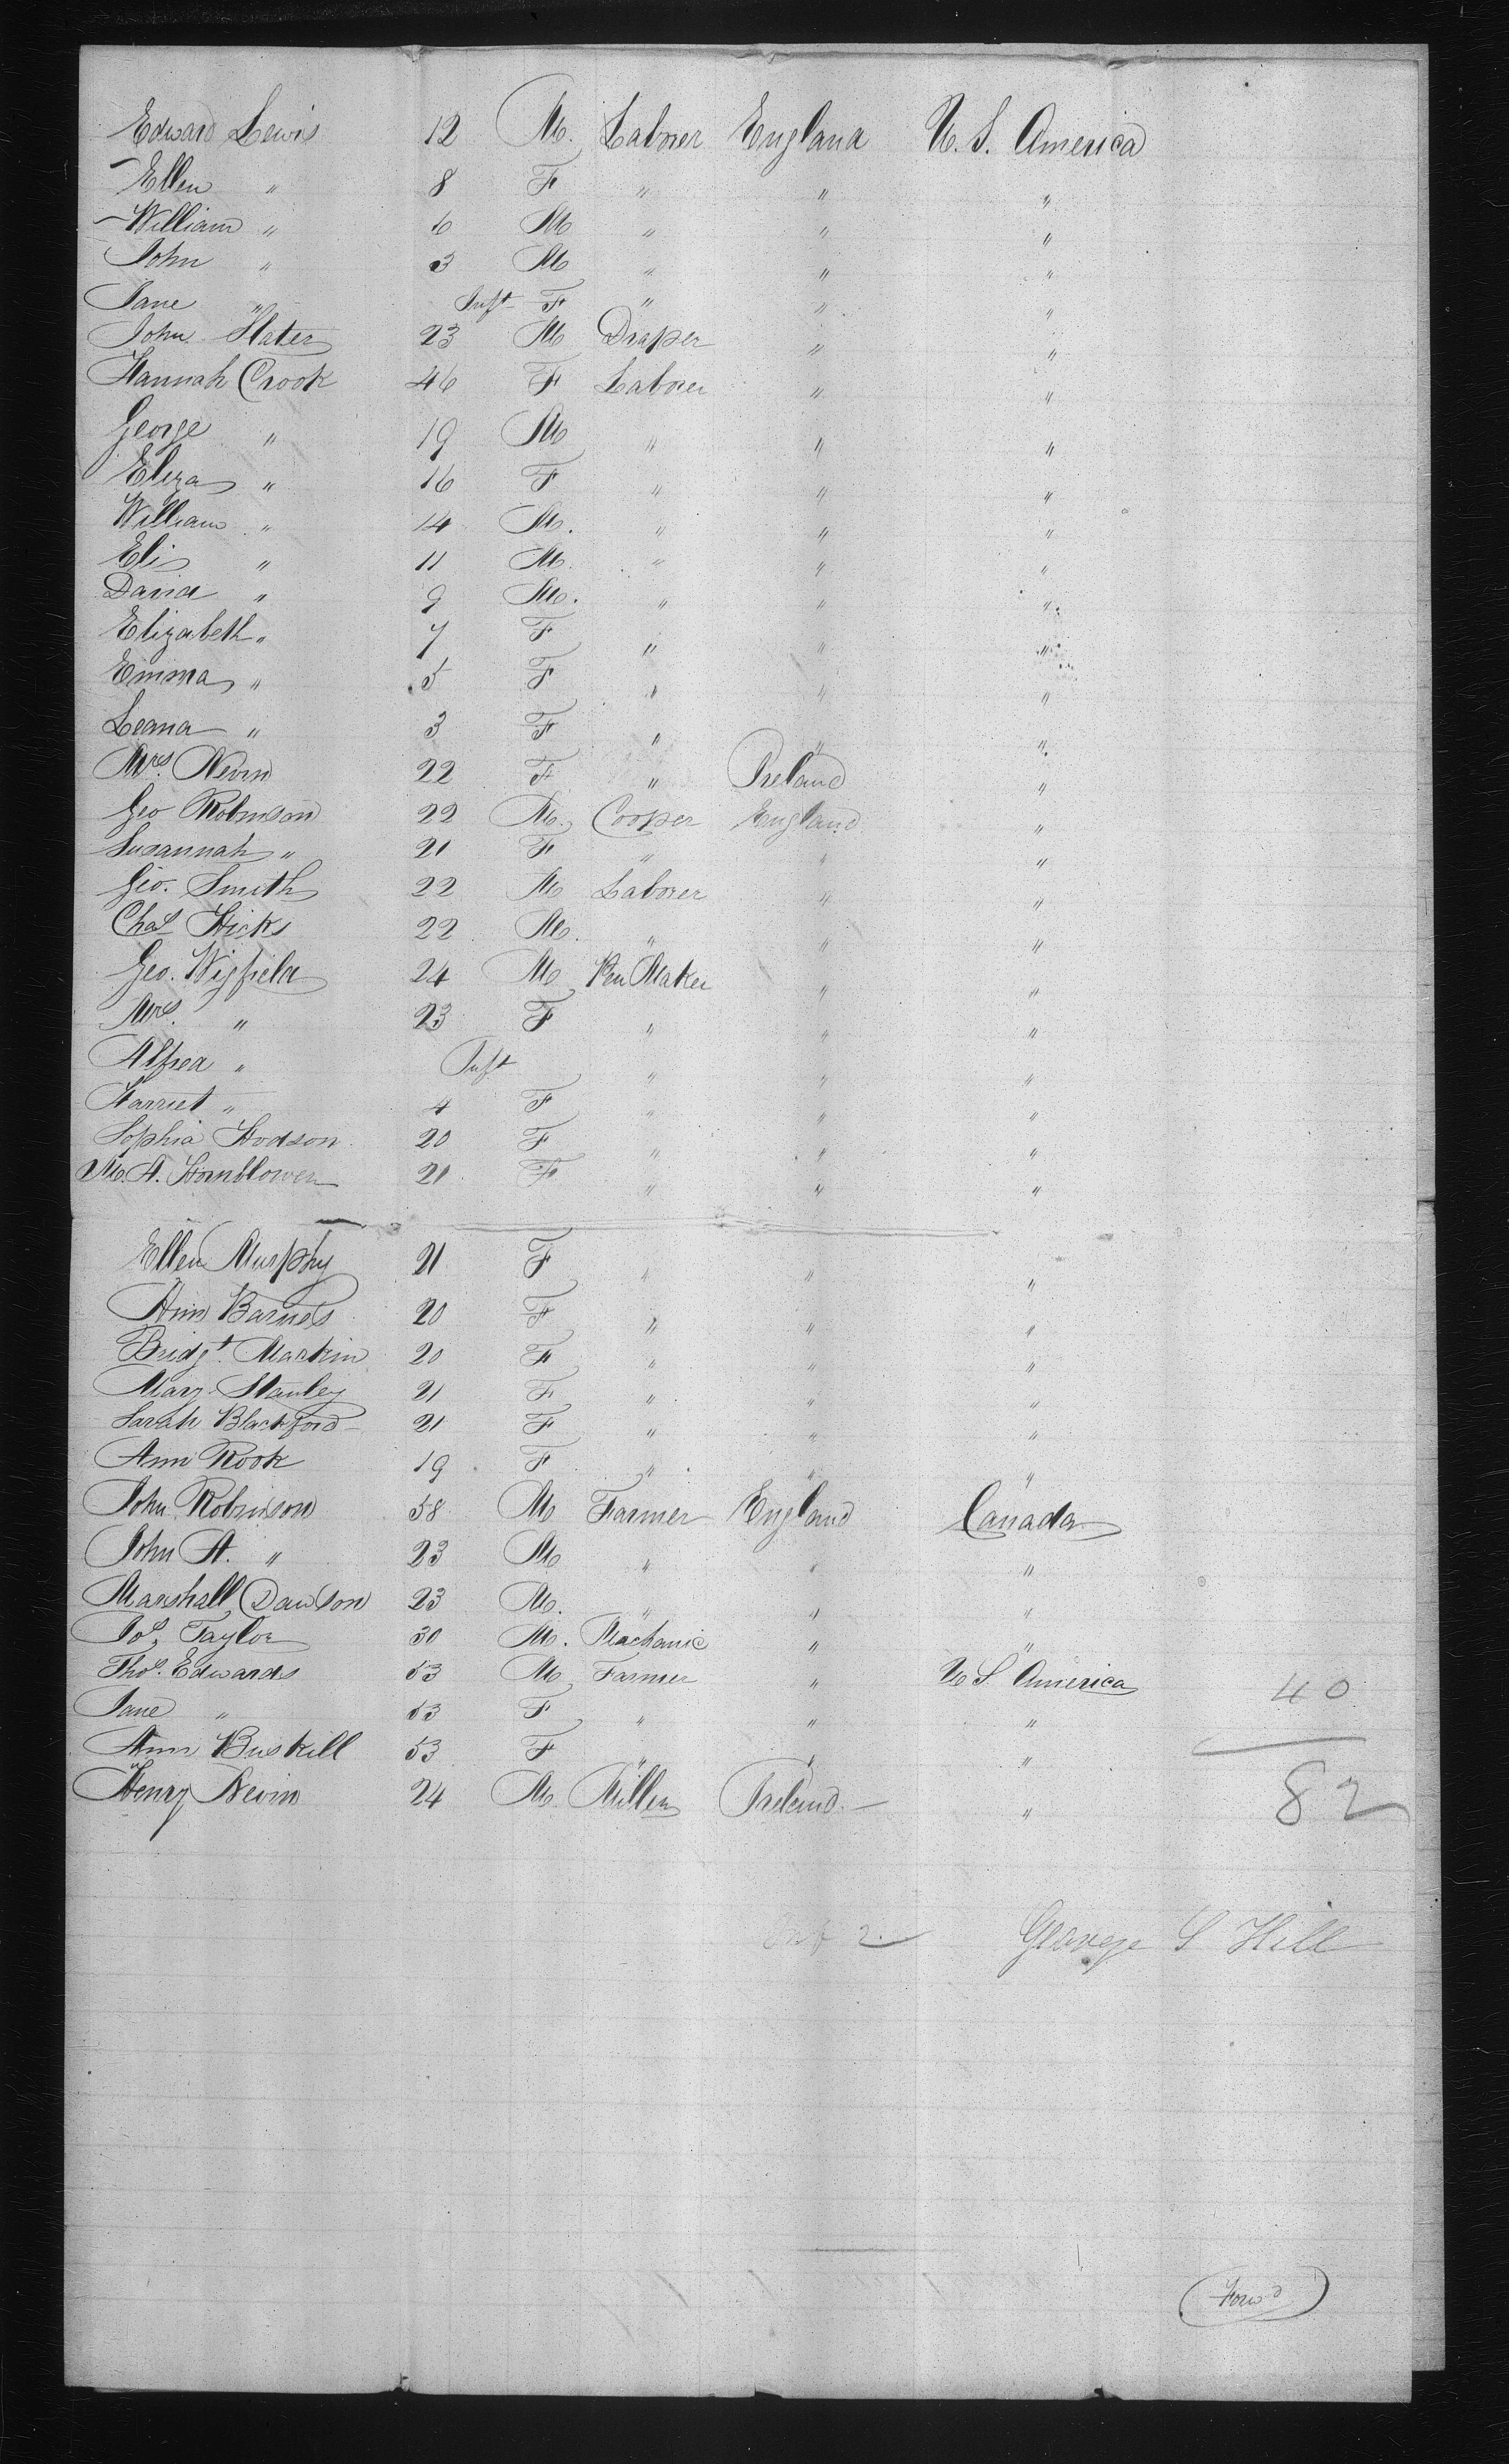 Edward Lewis 12 M. Laborer England U.S. America
Ellen " 8 F " " "
William " 6 M " " "
John " 3 M " " "
Jane " Inft F " " "
John Slater 23 M Draper " "
Hannah Crook 46 F Laborer " "
George " 19 M " " "
Eliza " 16 F " " "
William " 14 M. " " "
Eli " 11 M. " " "
David " 9 M. " " "
Elizabeth " 7 F " " "
Emma " 5 F " " "
Leana " 3 F " " "
Mrs. Nevin 22 F " Ireland "
Geo Robinson 22 M. Cooper England "
Susannah " 21 F " " "
Geo. Smith 22 M Laborer " "
Chas Hicks 22 M. " " "
Geo. Wigfield 24 M Pen Maker " "
Mrs. " 23 F " " "
Alfred " Inft " " "
Harriet " 4 F " " "
Sophia Hodson 20 F " " "
M. A. Hornblower 21 F " " "
Ellen Murphy 21 F " " "
Ann Barnes 20 F " " "
Bridgt. Markin 20 F " " "
Mary Stanley 21 F " " "
Sarah Blackford 21 F " " "
Ann Rook 19 F " " "
John Robinson 58 M Farmer England Canada
John A. " 23 M " " "
Marshall Dawson 23 M. " " "
Jos. Taylor 30 M. Machanic " "
Thos. Edwards 53 M Farmer " U S America
Jane " 53 F " " "
40
Ann Buskill 53 F " " "
Henry Nevin 24 M. Miller Ireland "
82
Inf 2. George S Hill
Forwd